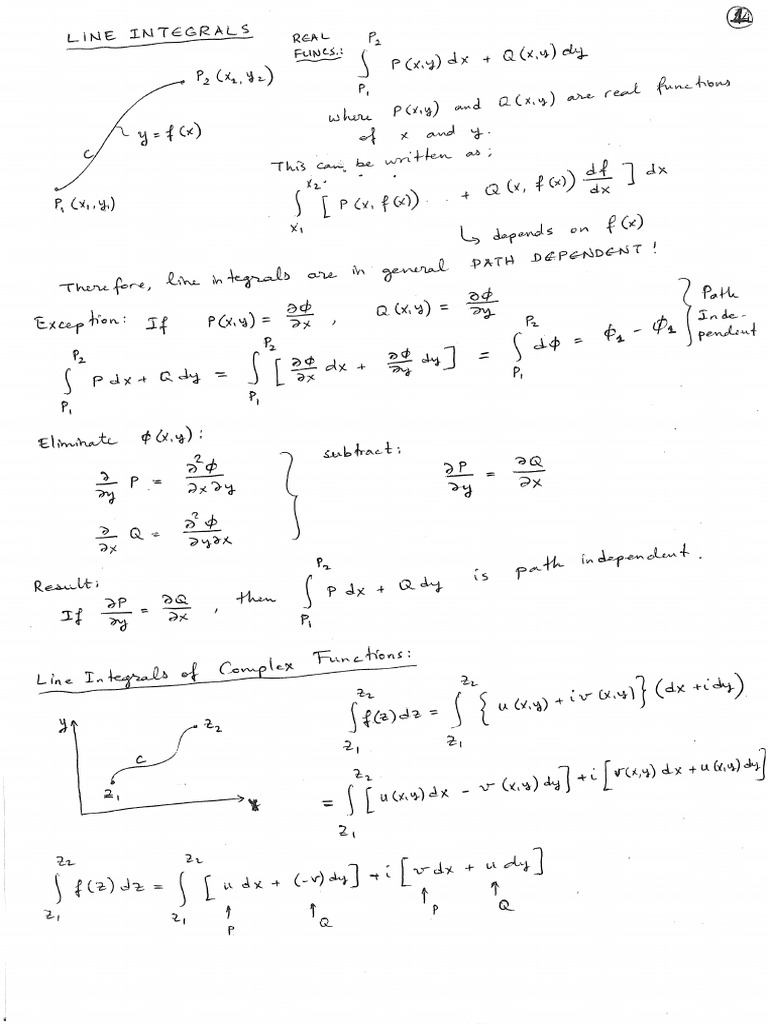 14
LINE INTEGRALS
P₂ (x₂, y₂)
y = f(x)
C
P₁ (x₁, y₁)
REAL FUNCS.: ∫_{P₁}^{P₂} P(x,y) dx + Q(x,y) dy
where P(x,y) and Q(x,y) are real functions
of x and y.
This can be written as:
∫_{x₁}^{x₂} [ P(x, f(x)) + Q(x, f(x)) df/dx ] dx
↳ depends on f(x)
Therefore, line integrals are in general PATH DEPENDENT!
Exception: If P(x,y) = ∂φ/∂x , Q(x,y) = ∂φ/∂y
∫_{P₁}^{P₂} P dx + Q dy = ∫_{P₁}^{P₂} [ ∂φ/∂x dx + ∂φ/∂y dy ] = ∫_{P₁}^{P₂} dφ = φ₂ - φ₁ } Path Inde-pendent
Eliminate φ(x,y):
∂/∂y P = ∂²φ/∂x∂y
∂/∂x Q = ∂²φ/∂y∂x
} subtract: ∂P/∂y = ∂Q/∂x
Result:
If ∂P/∂y = ∂Q/∂x , then ∫_{P₁}^{P₂} P dx + Q dy is path independent.
Line Integrals of Complex Functions:
y
z₂
C
z₁
x
∫_{z₁}^{z₂} f(z) dz = ∫_{z₁}^{z₂} { u(x,y) + i v(x,y) } (dx + i dy)
= ∫_{z₁}^{z₂} [ u(x,y) dx - v(x,y) dy ] + i [ v(x,y) dx + u(x,y) dy ]
∫_{z₁}^{z₂} f(z) dz = ∫_{z₁}^{z₂} [ u dx + (-v) dy ] + i [ v dx + u dy ]
↑ ↑ ↑ ↑
P Q P Q